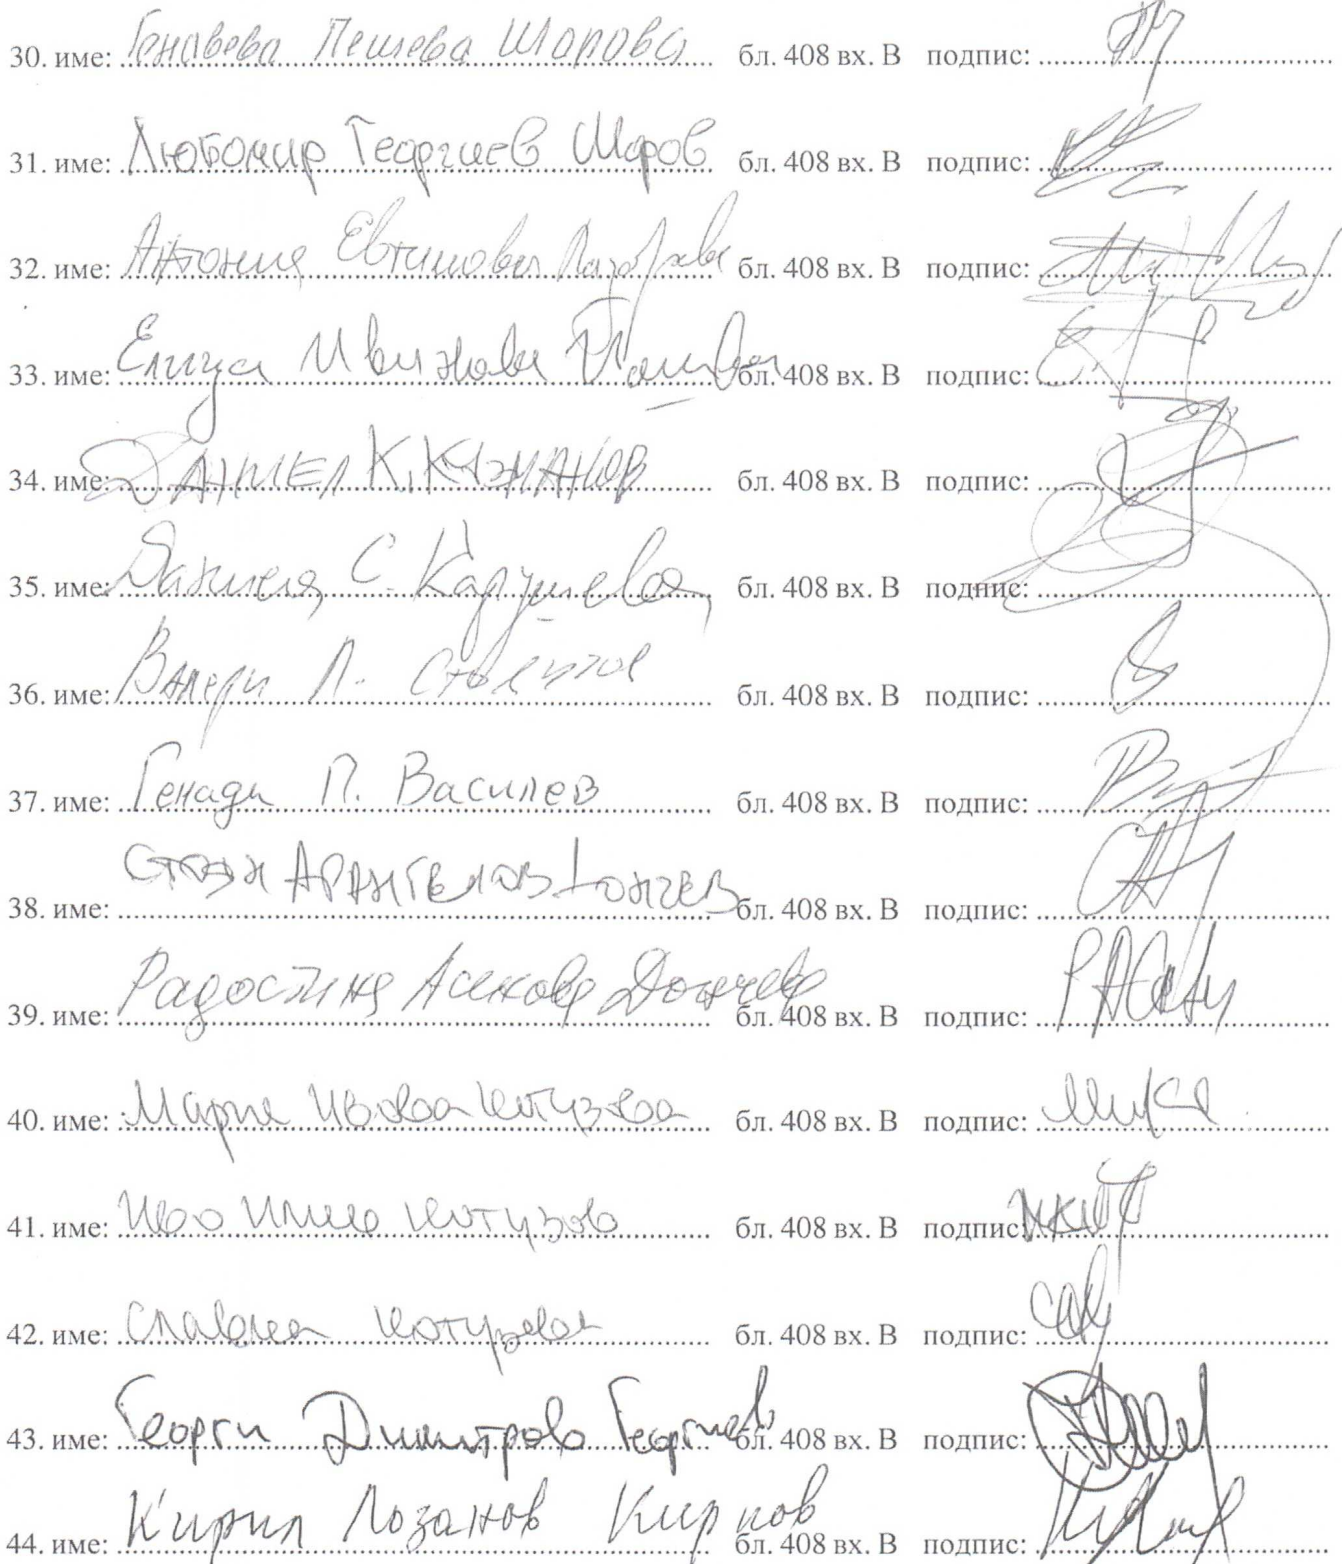 30. име: Генавева Пешева Шорова бл. 408 вх. В подпис:
31. име: Любомир Георгиев Шоров бл. 408 вх. В подпис:
32. име: Антония Евтимова бл. 408 вх. В подпис:
33. име: Елица Иванова бл. 408 вх. В подпис:
34. име: Даниел К. бл. 408 вх. В подпис:
35. име: Даниела С. бл. 408 вх. В подпис:
36. име: Валери П. бл. 408 вх. В подпис:
37. име: Генади П. Василев бл. 408 вх. В подпис:
38. име: Арангелов бл. 408 вх. В подпис:
39. име: Радостина Асенова Дончева бл. 408 вх. В подпис:
40. име: Мария Ивова Котузова бл. 408 вх. В подпис:
41. име: Иво Котузов бл. 408 вх. В подпис:
42. име: Славена Котузова бл. 408 вх. В подпис:
43. име: Георги Димитров Георгиев бл. 408 вх. В подпис:
44. име: Кирил Лозанов Кирков бл. 408 вх. В подпис: